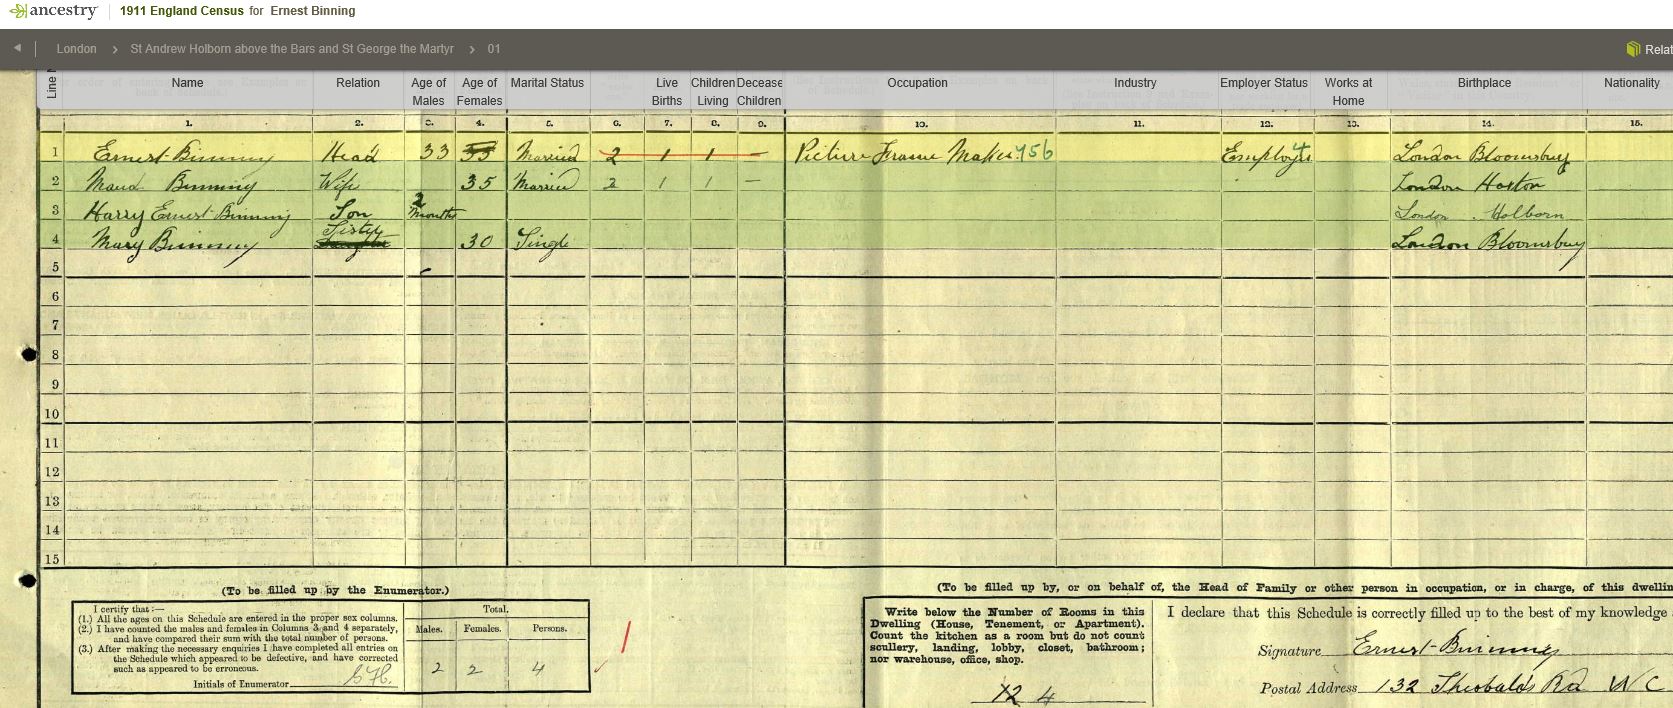 ancestry 1911 England Census for Ernest Binning
London > St Andrew Holborn above the Bars and St George the Martyr > 01 Relat
Line Name Relation Age of Males Age of Females Marital Status Live Births Children Living Decease Children Occupation Industry Employer Status Works at Home Birthplace Nationality
1. 2. 3. 4. 5. 6. 7. 8. 9. 10. 11. 12. 13. 14. 15.
1 Ernest Binning Head 33 33 Married 2 1 1 — Picture Frame Maker 756 Employer 4 London Bloomsbury
2 Maud Binning Wife 35 Married 2 1 1 — London Hoxton
3 Harry Ernest Binning Son 2 months London Holborn
4 Mary Binning Sister Daughter 30 Single London Bloomsbury
5
6
7
8
9
10
11
12
13
14
15
(To be filled up by the Enumerator.)
I certify that:—
(1.) All the ages on this Schedule are entered in the proper sex columns.
(2.) I have counted the males and females in Columns 3 and 4 separately,
and have compared their sum with the total number of persons.
(3.) After making the necessary enquiries I have completed all entries on
the Schedule which appeared to be defective, and have corrected
such as appeared to be erroneous.
Initials of Enumerator
Total.
Males. Females. Persons.
2 2 4
(To be filled up by, or on behalf of, the Head of Family or other person in occupation, or in charge, of this dwellin
Write below the Number of Rooms in this
Dwelling (House, Tenement, or Apartment).
Count the kitchen as a room but do not count
scullery, landing, lobby, closet, bathroom;
nor warehouse, office, shop.
12 4
I declare that this Schedule is correctly filled up to the best of my knowledge
Signature Ernest Binning
Postal Address 132 Theobalds Rd W C